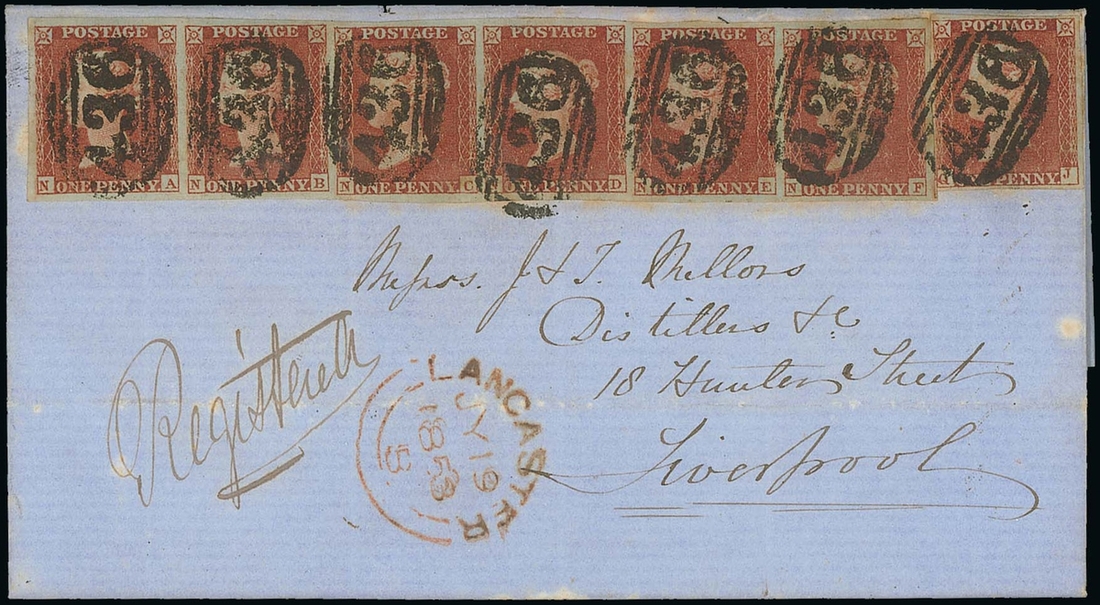 POSTAGE POSTAGE POSTAGE POSTAGE POSTAGE POSTAGE POSTAGE
436 436 436 436 436 436 436
N ONE PENNY A N ONE PENNY B N ONE PENNY C N ONE PENNY D N ONE PENNY E N ONE PENNY F PENNY J
Messrs. J & T. Mellors
Distillers &c
18 Hunter Street
Liverpool
Registered
LANCASTER
JY 19
1853